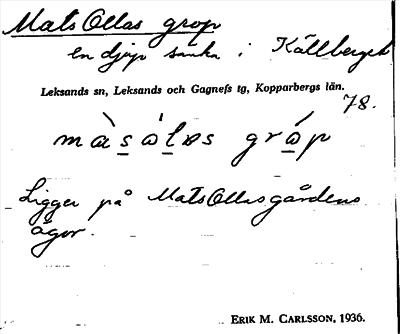 Mats Ollas grop
en djup sänka i Källberget
Leksands sn, Leksands och Gagnefs tg, Kopparbergs län.
78.
màsáləs gráp
Ligger på MatsOllasgårdens
ägor.
ERIK M. CARLSSON, 1936.